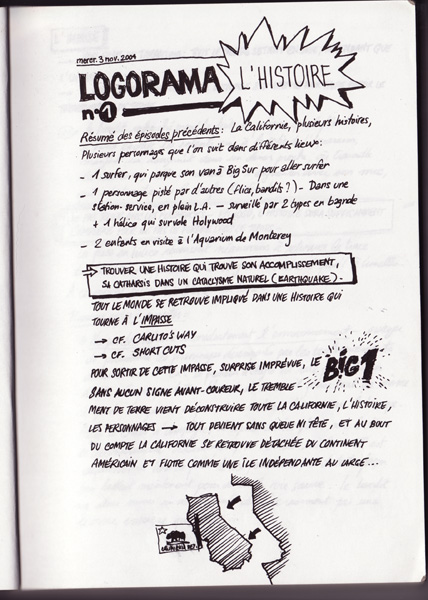 mercr. 3 nov. 2004
LOGORAMA
n.1
L'HISTOIRE
Résumé des épisodes précédents: La Californie, plusieurs histoires,
Plusieurs personnages que l'on suit dans différents lieux:
- 1 surfer, qui parque son van à Big Sur pour aller surfer
- 1 personnage pisté par d'autres (flics, bandits?) - Dans une
station-service, en plein L.A. - surveillé par 2 types en bagnole
+ 1 hélico qui survole Holywood
- 2 enfants en visite à l'Aquarium de Monterey
→ TROUVER UNE HISTOIRE QUI TROUVE SON ACCOMPLISSEMENT,
SA CATHARSIS DANS UN CATACLYSME NATUREL (EARTHQUAKE) -
TOUT LE MONDE SE RETROUVE IMPLIQUÉ DANS UNE HISTOIRE QUI
TOURNE À L'IMPASSE
→ CF. CARLITO'S WAY
→ CF. SHORT CUTS
POUR SORTIR DE CETTE IMPASSE, SURPRISE IMPRÉVUE, LE BIG 1
SANS AUCUN SIGNE AVANT-COUREUR, LE TREMBLE-
MENT DE TERRE VIENT DÉCONSTRUIRE TOUTE LA CALIFORNIE, L'HISTOIRE,
LES PERSONNAGES → TOUT DEVIENT SANS QUEUE NI TÊTE, ET AU BOUT
DU COMPTE LA CALIFORNIE SE RETROUVE DÉTACHÉE DU CONTINENT
AMÉRICAIN ET FLOTTE COMME UNE ÎLE INDÉPENDANTE AU LARGE...
CALIFORNIA REP.